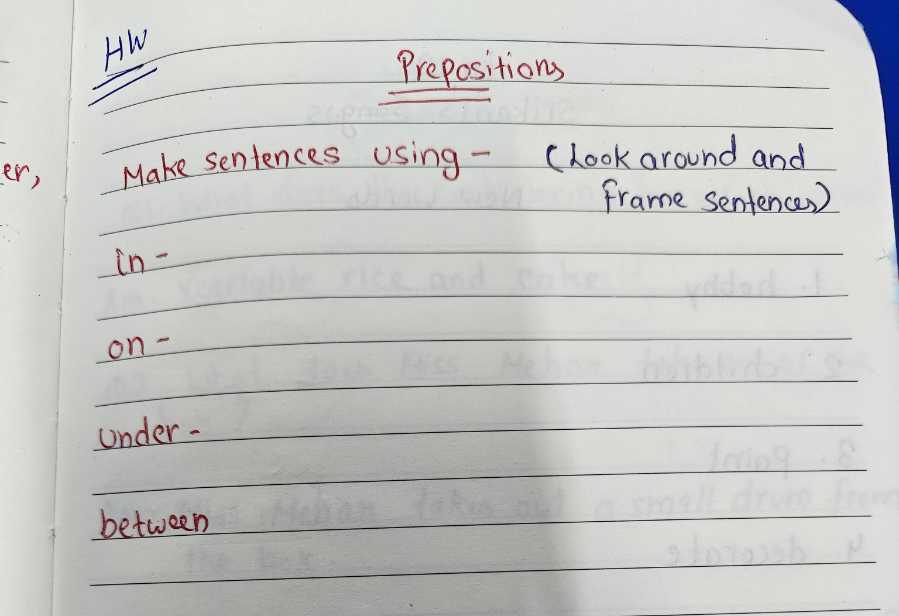 HW
Prepositions
er,
Make sentences using - (Look around and
frame sentences)
in -
on -
under -
between